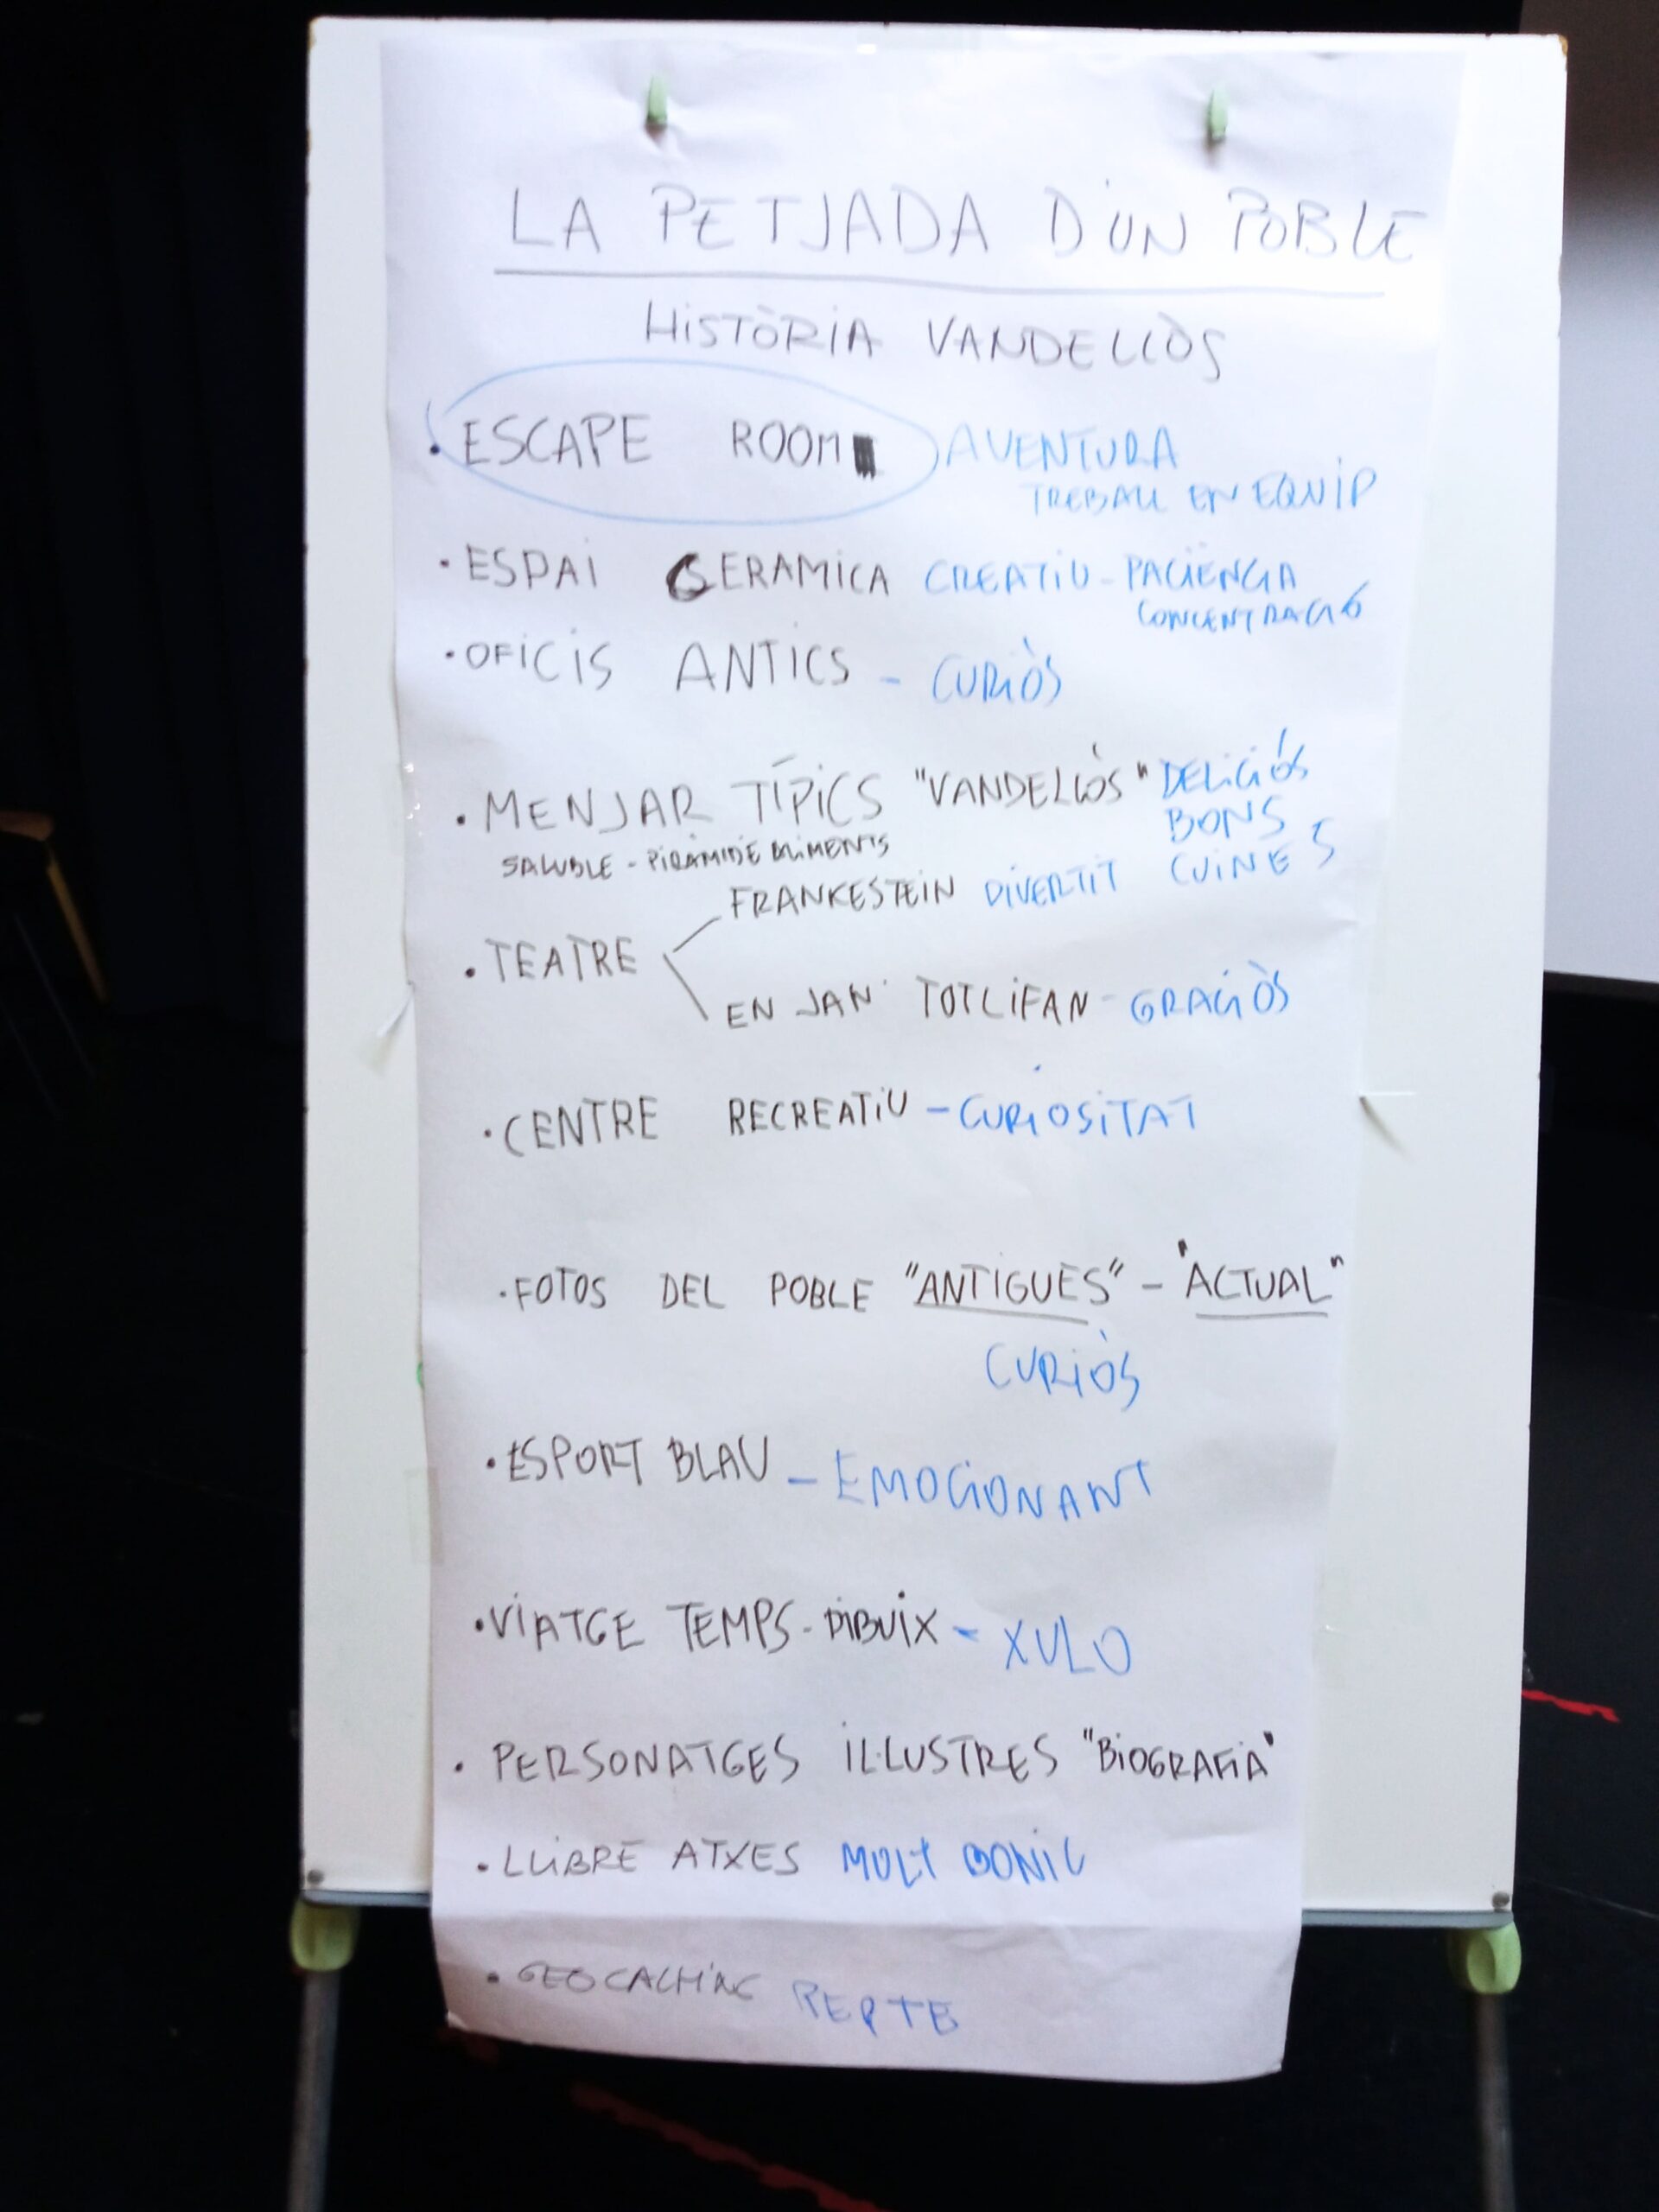 LA PETJADA D'UN POBLE
HISTÒRIA VANDELLÒS
• ESCAPE ROOM AVENTURA
TREBALL EN EQUIP
• ESPAI CERAMICA CREATIU - PACIÈNCIA
CONCENTRACIÓ
• OFICIS ANTICS - CURIÒS
• MENJAR TÍPICS "VANDELLÒS" DELICIÓS
BONS
SALUBLE - PIRÀMIDE ALIMENTS
CUINES
FRANKESTEIN DIVERTIT
• TEATRE
EN JAN TOTLIFAN - GRACIÒS
• CENTRE RECREATIU - CURIOSITAT
• FOTOS DEL POBLE "ANTIGUES" - "ACTUAL"
CURIÒS
• ESPORT BLAU - EMOCIONANT
• VIATGE TEMPS - DIBUIX - XULO
• PERSONATGES IL·LUSTRES "BIOGRAFIA"
• LLIBRE ATXES MOLT BONIC
• GEOCACHING REPTE